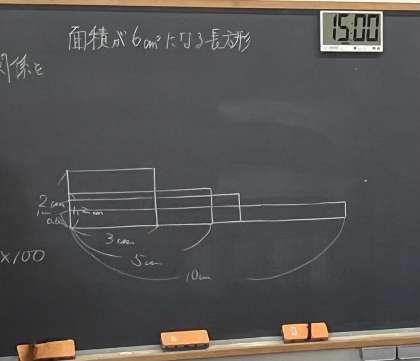 面積が6cm²になる長方形
15:00
関係を
2cm
1.2cm
3cm
5cm
10cm
×100